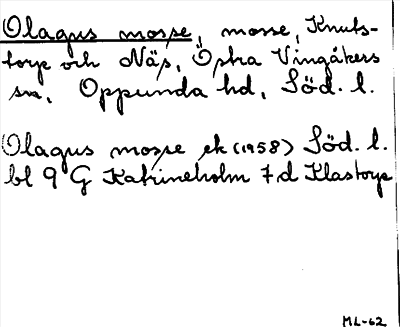 Olagus mosse, mosse, Knuts-
torp och Näs, Östra Vingåkers
sn, Oppunda hd, Söd. l.
Olagus mosse ek (1958) Söd. l.
bl 9 G Katrineholm 7 d Klastorp
ML-62